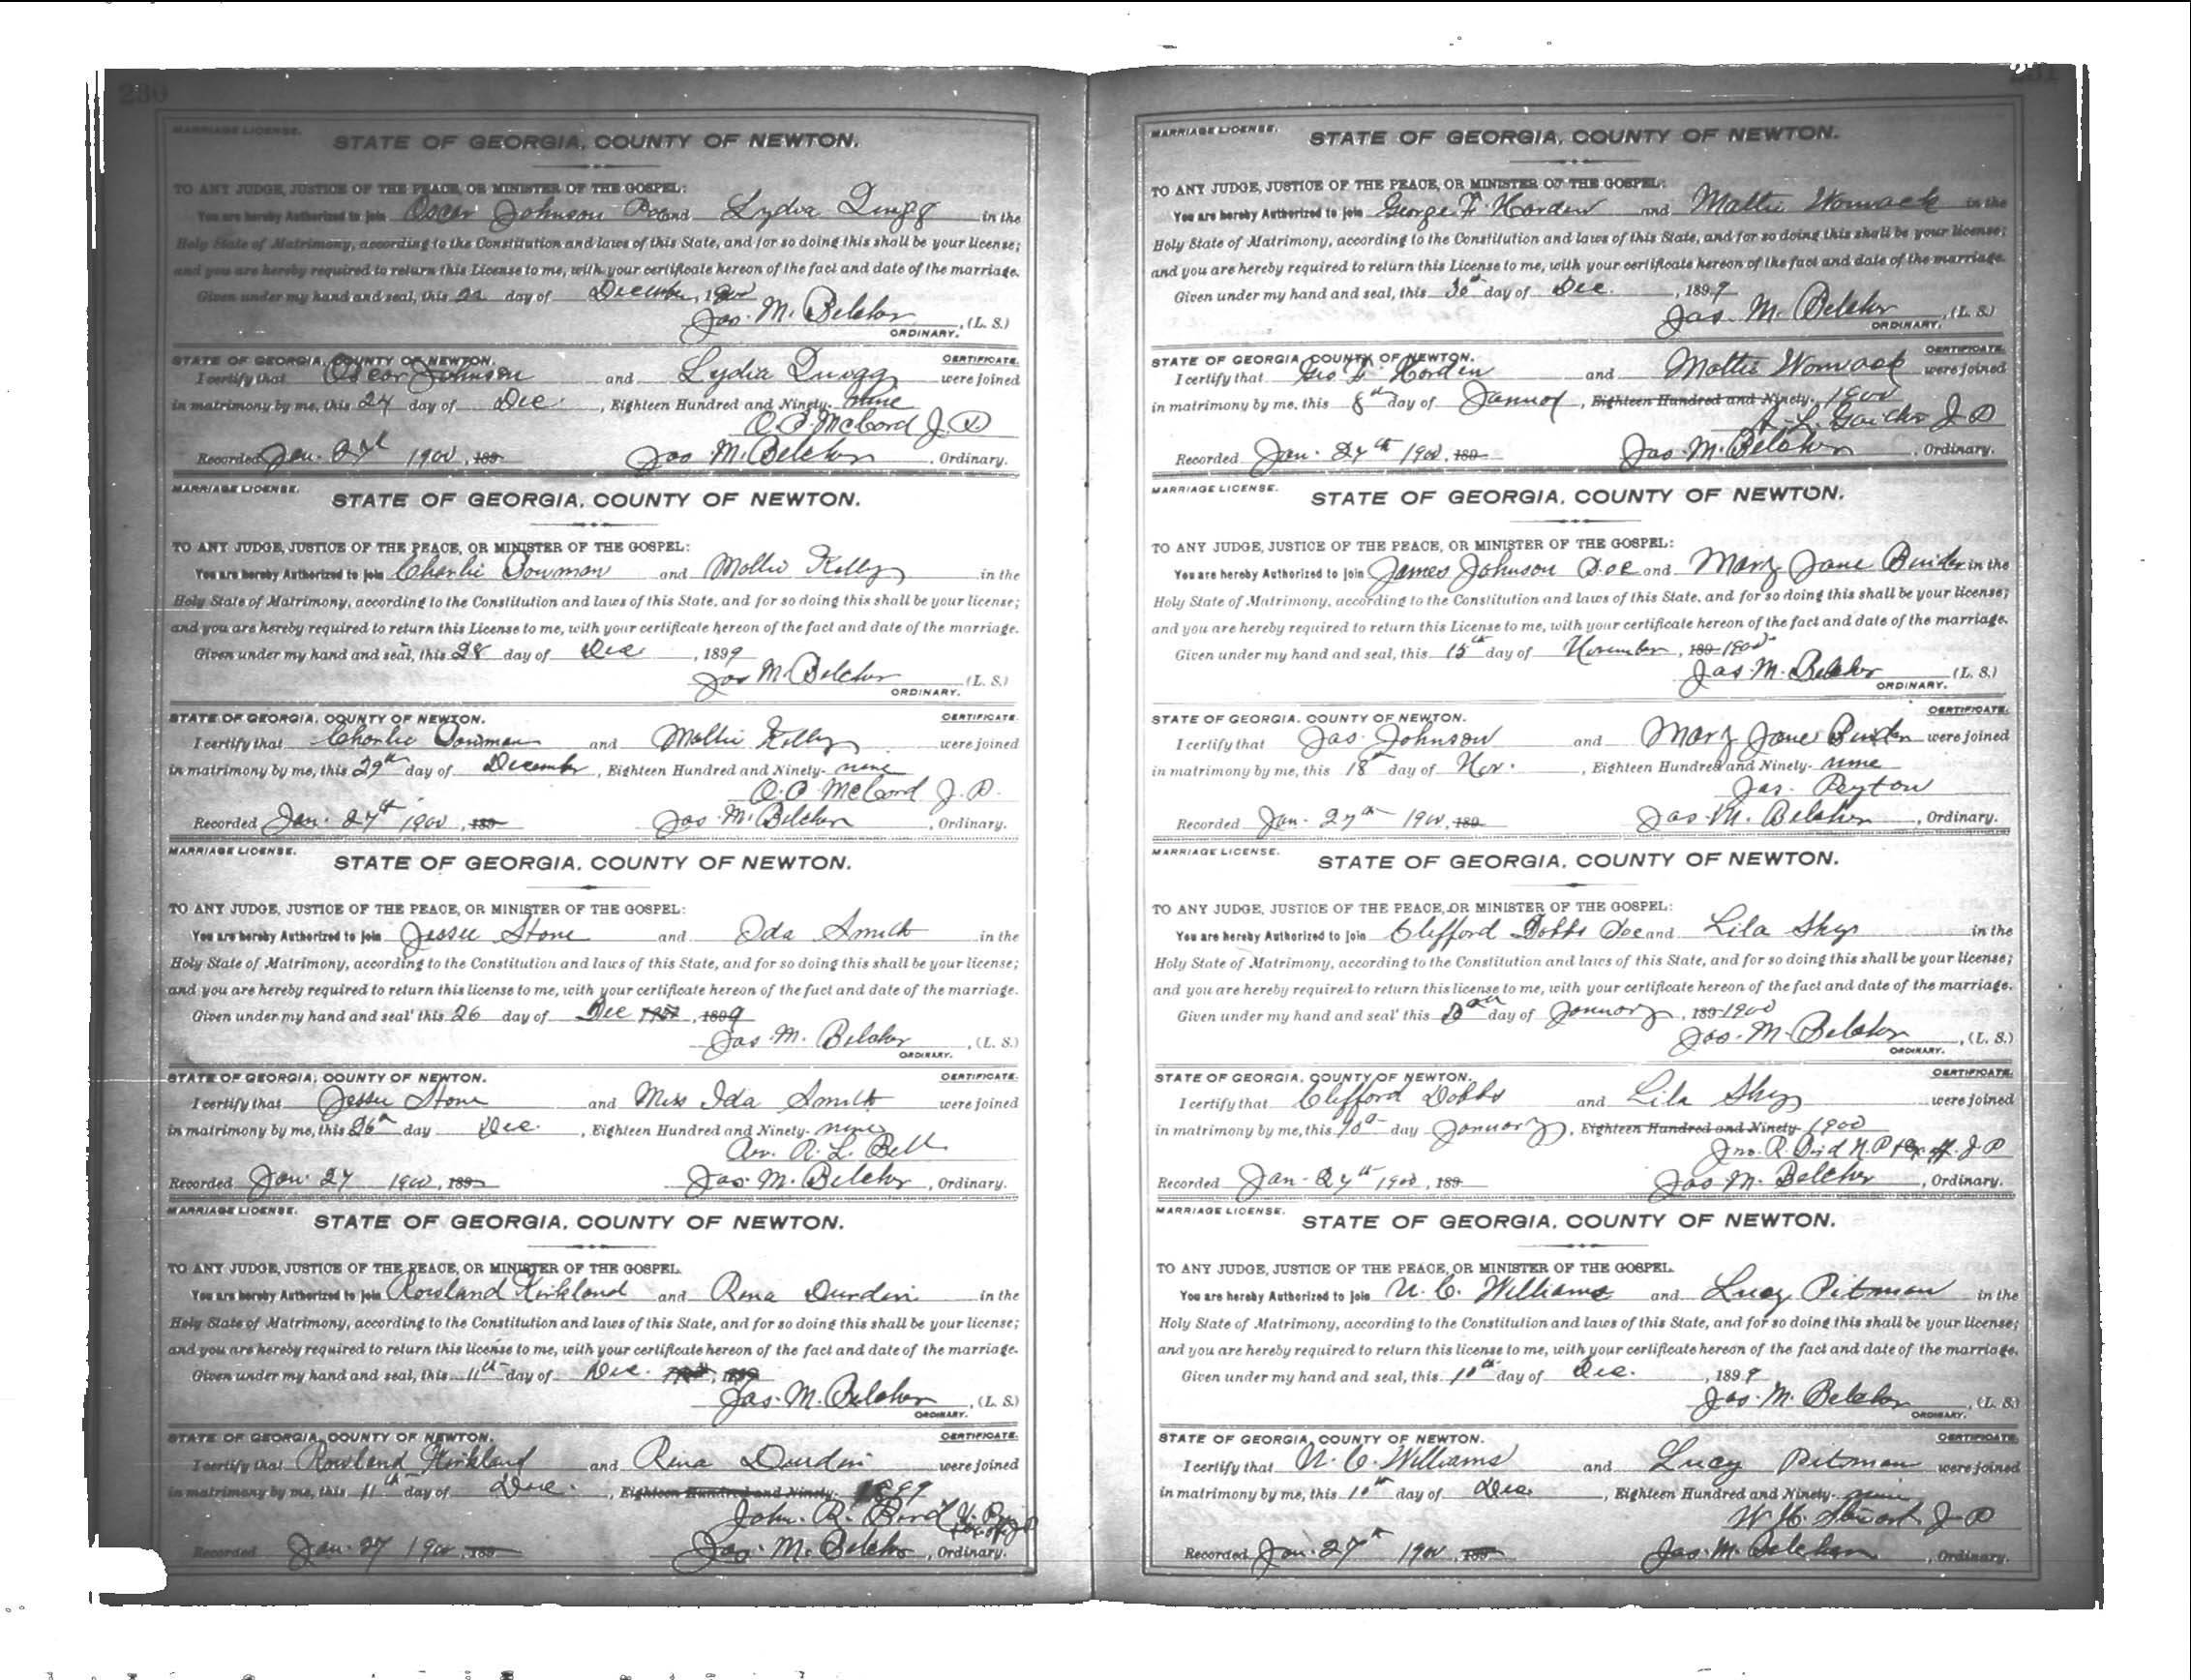 230
MARRIAGE LICENSE.
STATE OF GEORGIA, COUNTY OF NEWTON.
TO ANY JUDGE, JUSTICE OF THE PEACE, OR MINISTER OF THE GOSPEL:
You are hereby Authorized to join Oscar Johnson and Lydia in the
Holy State of Matrimony, according to the Constitution and laws of this State, and for so doing this shall be your license;
and you are hereby required to return this License to me, with your certificate hereon of the fact and date of the marriage.
Given under my hand and seal, this 22 day of December, 1900
Jas. M. Belcher, (L. S.)
ORDINARY.
STATE OF GEORGIA, COUNTY OF NEWTON. CERTIFICATE.
I certify that Oscar Johnson and Lydia were joined
in matrimony by me, this 24 day of Dec., Eighteen Hundred and Ninety-nine
O. P. McCord J. P.
Recorded Jan. 1900, 189 Jas M. Belcher, Ordinary.
MARRIAGE LICENSE.
STATE OF GEORGIA, COUNTY OF NEWTON.
TO ANY JUDGE, JUSTICE OF THE PEACE, OR MINISTER OF THE GOSPEL:
You are hereby Authorized to join Charlie Bowman and Mollie Kelly in the
Holy State of Matrimony, according to the Constitution and laws of this State, and for so doing this shall be your license;
and you are hereby required to return this License to me, with your certificate hereon of the fact and date of the marriage.
Given under my hand and seal, this 28 day of Dec, 1899
Jas M. Belcher (L. S.)
ORDINARY.
STATE OF GEORGIA, COUNTY OF NEWTON. CERTIFICATE.
I certify that Charlie Bowman and Mollie Kelly were joined
in matrimony by me, this 29th day of December, Eighteen Hundred and Ninety-nine
O. P. McCord J. P.
Recorded Jan. 27th 1900, 189 Jas. M. Belcher, Ordinary.
MARRIAGE LICENSE.
STATE OF GEORGIA, COUNTY OF NEWTON.
TO ANY JUDGE, JUSTICE OF THE PEACE, OR MINISTER OF THE GOSPEL:
You are hereby Authorized to join Jessee Stone and Ida Smith in the
Holy State of Matrimony, according to the Constitution and laws of this State, and for so doing this shall be your license;
and you are hereby required to return this license to me, with your certificate hereon of the fact and date of the marriage.
Given under my hand and seal this 26 day of Dec, 1899
Jas. M. Belcher, (L. S.)
ORDINARY.
STATE OF GEORGIA, COUNTY OF NEWTON. CERTIFICATE.
I certify that Jessee Stone and Miss Ida Smith were joined
in matrimony by me, this 26th day Dec., Eighteen Hundred and Ninety-nine
R. L. Bell
Recorded Jan. 27 1900, 189 Jas. M. Belcher, Ordinary.
MARRIAGE LICENSE.
STATE OF GEORGIA, COUNTY OF NEWTON.
TO ANY JUDGE, JUSTICE OF THE PEACE, OR MINISTER OF THE GOSPEL.
You are hereby Authorized to join Rowland Kirkland and Rena Durden in the
Holy State of Matrimony, according to the Constitution and laws of this State, and for so doing this shall be your license;
and you are hereby required to return this license to me, with your certificate hereon of the fact and date of the marriage.
Given under my hand and seal, this 11th day of Dec. 1899
Jas. M. Belcher, (L. S.)
ORDINARY.
STATE OF GEORGIA, COUNTY OF NEWTON. CERTIFICATE.
I certify that Rowland Kirkland and Rena Durden were joined
in matrimony by me, this 11th day of Dec., Eighteen Hundred and Ninety- 1899
John. R. Bird
Recorded Jan. 27 1900, 189 Jas. M. Belcher, Ordinary.
231
MARRIAGE LICENSE.
STATE OF GEORGIA, COUNTY OF NEWTON.
TO ANY JUDGE, JUSTICE OF THE PEACE, OR MINISTER OF THE GOSPEL:
You are hereby Authorized to join George F. Horden and Mattie Womack in the
Holy State of Matrimony, according to the Constitution and laws of this State, and for so doing this shall be your license;
and you are hereby required to return this License to me, with your certificate hereon of the fact and date of the marriage.
Given under my hand and seal, this 30th day of Dec., 1899
Jas. M. Belcher, (L. S.)
ORDINARY.
STATE OF GEORGIA, COUNTY OF NEWTON. CERTIFICATE.
I certify that Geo F. Horden and Mattie Womack were joined
in matrimony by me, this 8th day of, Eighteen Hundred and Ninety- 1900
J. P.
Recorded Jan. 27th 1900, 189 Jas. M. Belcher, Ordinary.
MARRIAGE LICENSE.
STATE OF GEORGIA, COUNTY OF NEWTON.
TO ANY JUDGE, JUSTICE OF THE PEACE, OR MINISTER OF THE GOSPEL:
You are hereby Authorized to join James Johnson and Mary Jane in the
Holy State of Matrimony, according to the Constitution and laws of this State, and for so doing this shall be your license;
and you are hereby required to return this License to me, with your certificate hereon of the fact and date of the marriage.
Given under my hand and seal, this 15th day of November, 189 1900
Jas. M. Belcher (L. S.)
ORDINARY.
STATE OF GEORGIA, COUNTY OF NEWTON. CERTIFICATE.
I certify that Jas. Johnson and Mary Jane were joined
in matrimony by me, this 18th day of Nov., Eighteen Hundred and Ninety-nine
Jas. Peyton
Recorded Jan. 27th 1900, 189 Jas. M. Belcher, Ordinary.
MARRIAGE LICENSE.
STATE OF GEORGIA, COUNTY OF NEWTON.
TO ANY JUDGE, JUSTICE OF THE PEACE, OR MINISTER OF THE GOSPEL:
You are hereby Authorized to join Clifford Dobbs and Lila Shy in the
Holy State of Matrimony, according to the Constitution and laws of this State, and for so doing this shall be your license;
and you are hereby required to return this license to me, with your certificate hereon of the fact and date of the marriage.
Given under my hand and seal this day of January, 189 1900
Jas. M. Belcher, (L. S.)
ORDINARY.
STATE OF GEORGIA, COUNTY OF NEWTON. CERTIFICATE.
I certify that Clifford Dobbs and Lila Shy were joined
in matrimony by me, this 10th day January, Eighteen Hundred and Ninety- 1900
Jno. R. Bird N. P. & Ex off. J. P.
Recorded Jan. 27th 1900, 189 Jas M. Belcher, Ordinary.
MARRIAGE LICENSE.
STATE OF GEORGIA, COUNTY OF NEWTON.
TO ANY JUDGE, JUSTICE OF THE PEACE, OR MINISTER OF THE GOSPEL.
You are hereby Authorized to join N. C. Williams and Lucy Pitman in the
Holy State of Matrimony, according to the Constitution and laws of this State, and for so doing this shall be your license;
and you are hereby required to return this license to me, with your certificate hereon of the fact and date of the marriage.
Given under my hand and seal, this 10th day of Dec., 1899
Jas. M. Belcher, (L. S.)
ORDINARY.
STATE OF GEORGIA, COUNTY OF NEWTON. CERTIFICATE.
I certify that N. C. Williams and Lucy Pitman were joined
in matrimony by me, this 10th day of Dec., Eighteen Hundred and Ninety-nine
W. H. Stewart J. P.
Recorded Jan. 27th 1900, 189 Jas. M. Belcher, Ordinary.